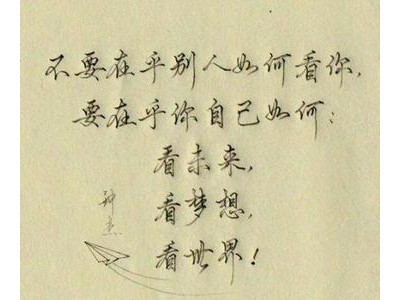 不要在乎别人如何看你，
要在乎你自己如何：
看未来，
看梦想，
看世界！